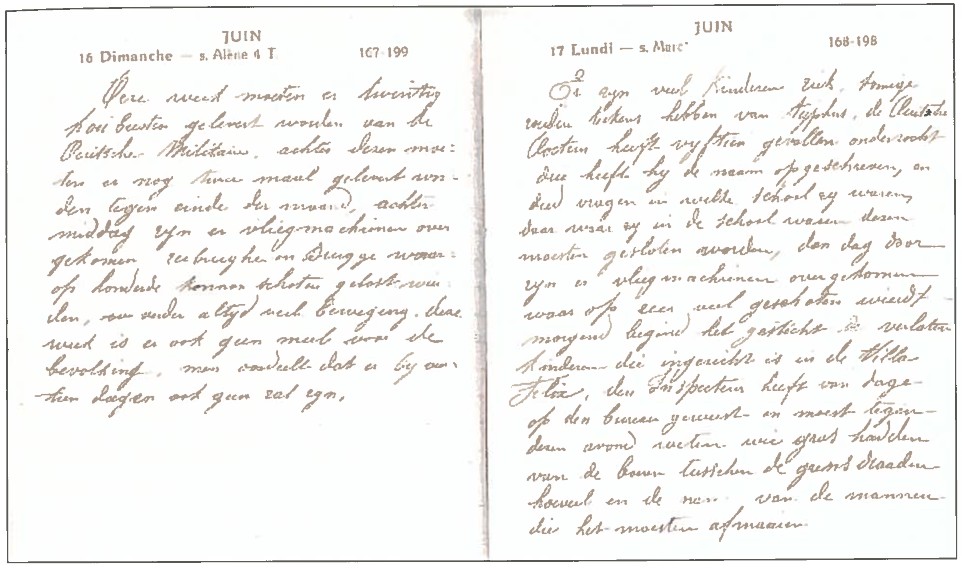 JUIN
16 Dimanche — s. Alène 4 T 167-199
Deze week moeten er twintig
hoofbeesten gelevert worden van de
Duitsche Militaire, achter dezen moe-
ten er nog twee maal gelevert wor-
den tegen einde der maand, achter
middag zyn er vliegmachienen over
gekomen zeebrugghe en Brugge waar-
op honderde kannon schoten gelost wier
den, over ander altyd veel beweging. deze
week is er ook geen meel voor de
bevolking, men oordeelt dat er by
tien dagen ook geen zal zyn.
JUIN
17 Lundi — s. Marc 168-198
Er zyn veel kinderen ziek, somige
zouden tekens hebben van typhus, de Duitsche
Doctern heeft vyftien gevallen onderzocht
drie heeft hy de naam opgeschreven, en
deed vragen in welke school zy waren,
daar waar zy in de school waren dezen
moesten gesloten worden, den dag door
zyn er vliegmachienen overgekomen
waar op zeer veel geschoten wierdt
morgend begind het gesticht verlaten
kinderen die ingericht is in de Villa
Felix, den Inspecteur heeft van dage
op den bureau geweest en moest tegen
dezen avond weten wie gras hadden
van de boeren tusschen de grensdraaden
hoeveel en de nam van de mannen
die het moesten afmaaien